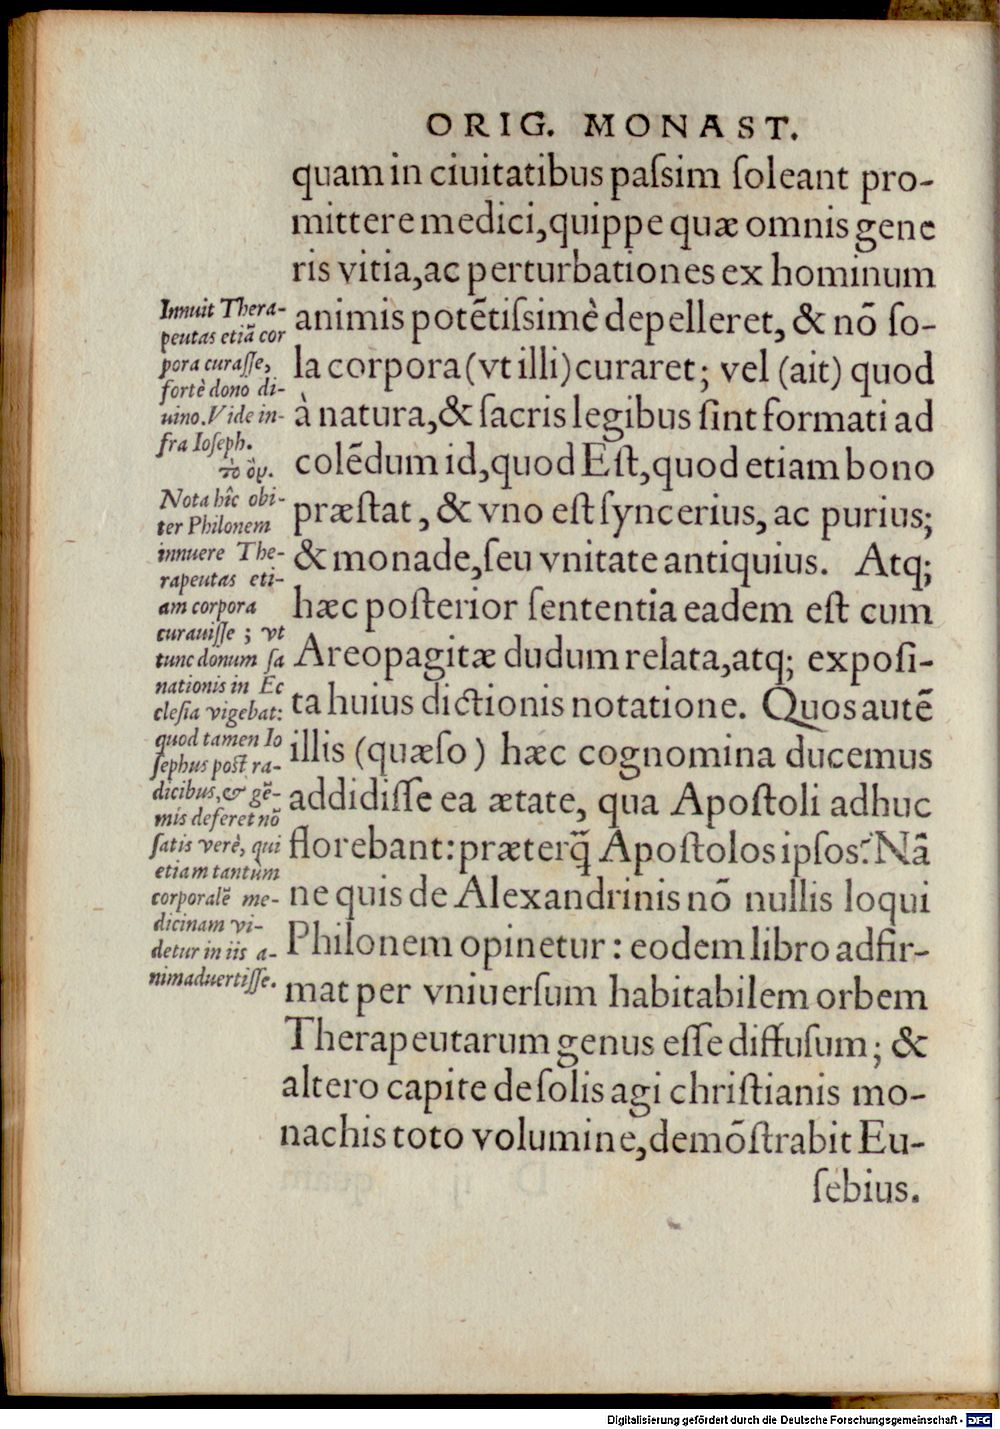 ORIG. MONAST.
quam in ciuitatibus paſsim ſoleant pro-
mittere medici, quippe quæ omnis gene
ris vitia, ac perturbationes ex hominum
animis potẽtiſsimè depelleret, & nõ ſo-
la corpora (vt illi) curaret; vel (ait) quod
à natura, & ſacris legibus ſint formati ad
colẽdum id, quod Eſt, quod etiam bono
præſtat, & vno eſt ſyncerius, ac purius;
& monade, ſeu vnitate antiquius. Atq;
hæc poſterior ſententia eadem eſt cum
Areopagitæ dudum relata, atq; expoſi-
ta huius dictionis notatione. Quos autẽ
illis (quæſo) hæc cognomina ducemus
addidiſſe ea ætate, qua Apoſtoli adhuc
florebant: præterq̃ Apoſtolos ipſos? Nã
ne quis de Alexandrinis nõ nullis loqui
Philonem opinetur: eodem libro adfir-
mat per vniuerſum habitabilem orbem
Therapeutarum genus eſſe diffuſum; &
altero capite de ſolis agi chriſtianis mo-
nachis toto volumine, demõſtrabit Eu-
ſebius.
Innuit Thera-
peutas etiã cor
pora curaſſe,
fortè dono di-
uino. Vide in-
fra Ioſeph.
τὸ ὄν.
Nota hîc obi-
ter Philonem
innuere The-
rapeutas eti-
am corpora
curauiſſe; vt
tunc donum ſa
nationis in Ec
cleſia vigebat:
quod tamen Io
ſephus poſt ra-
dicibus, & gẽ-
mis deferet nõ
ſatis verè, qui
etiam tantùm
corporalẽ me-
dicinam vi-
detur in iis a-
nimaduertiſſe.
Digitalisierung gefördert durch die Deutsche Forschungsgemeinschaft - DFG